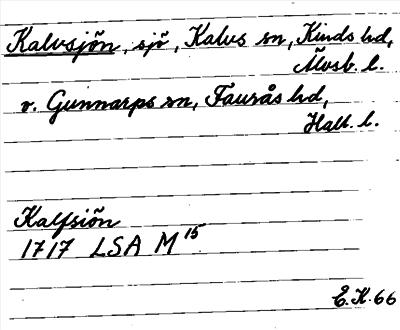 Kalvsjön, sjö, Kalvs sn, Kinds hd,
Älvsb. l.
o. Gunnarps sn, Faurås hd,
Hall. l.
Kalfsiön
1717 LSA M 15
E.K. 66